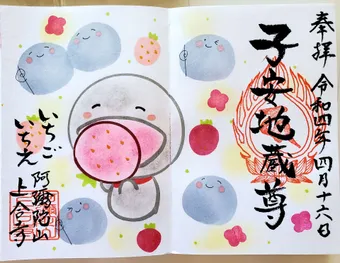 奉拝
令和四年四月十六日
子安地蔵尊
いちご
いちえ
阿彌陀山
上合寺